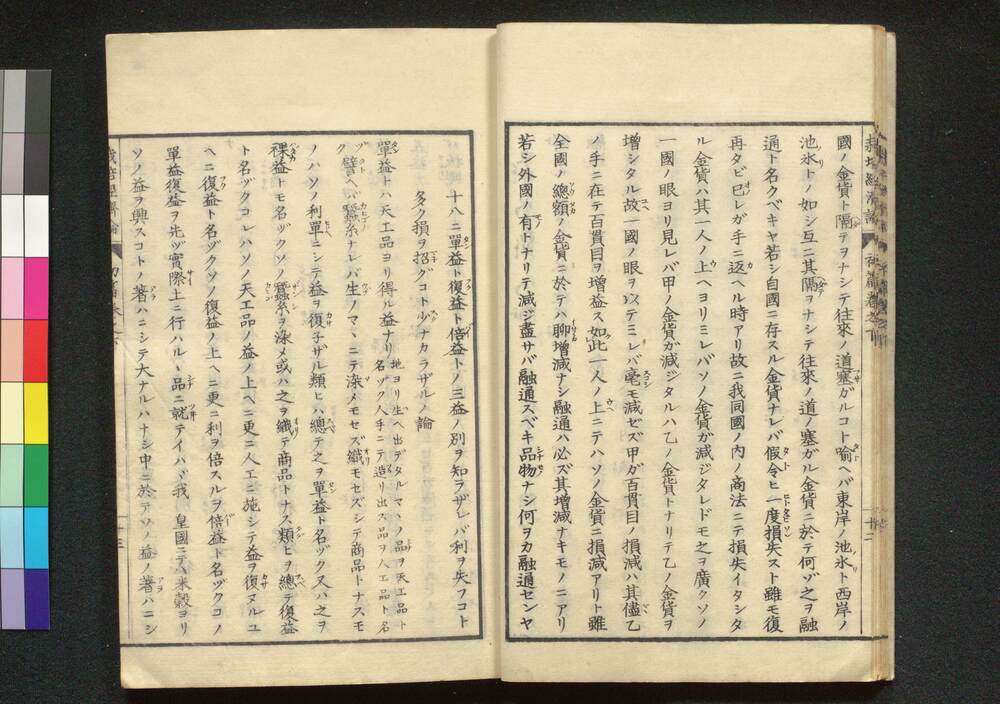 國ノ金貨ト隔テヲナシテ往來ノ道塞ガルコト喩ヘバ東岸ノ池氷ト西岸ノ
池氷トノ如シ互ニ其隔ヲナシテ往來ノ道ノ塞ガル金貨ニ於テ何ゾ之ヲ融
通ト名クベキヤ若シ自國ニ存スル金貨ナレバ假令ヒ一度損失スト雖モ復
再タビ巳レガ手ニ返ヘル時アリ故ニ我同國ノ内ノ商法ニテ損失イタシタ
ル金貨ハ其一人ノ上ヘヨリミレバソノ金貨ガ減ジタレドモ之ヲ廣クソノ
一國ノ眼ヨリ見レバ甲ノ金貨ガ減ジタルハ乙ノ金貨トナリテ乙ノ金貨ヲ
增シタル故一國ノ眼ヲ以テミレバ毫モ減ゼズ甲ガ百貫目ノ損減ハ其儘乙
ノ手ニ在テ百貫目ヲ增益ス如此一人ノ上ニテハソノ金貨ニ損減アリト雖
全國ノ總額ノ金貨ニ於テハ聊增減ナシ融通ハ必ズ其增減ナキモノニアリ
若シ外國ノ有トナリテ減ジ盡サバ融通スベキ品物ナシ何ヲカ融通センヤ
十二
十八ニ單益ト復益ト倍益トノ三益ノ別ヲ知ラザレバ利ヲ失フコト
多ク損ヲ招グコト少ナカラザルノ論
單益トハ天工品ヨリ得ル益ナリ地ヨリ生ヘ出デタルマヽノ品ヲ天工品ト
名ヅク人手ニテ造リ出ス品ヲ人工品ト名
ヅク譬ヘバ蠶糸ナレバ生ノマヽニテ染メモセズ織モセズシテ商品トナスモ
ノハソノ利單ニシテ益ヲ復子ザル類ヒハ總テ之ヲ單益ト名ヅク又ハ之ヲ
裸益トモ名ヅクソノ蠶糸ヲ染メ或ハ之ヲ織テ商品トナス類ヒヲ總テ復益
ト名ヅクコレハソノ天工品ノ益ノ上ヘニ更ニ人工ニ施シテ益ヲ復ヌルユ
ヘニ復益ト名ヅクソノ復益ノ上ヘニ更ニ利ヲ倍スルヲ倍益ト名ヅクコノ
單益復益ヲ先ヅ實際上ニ行ハルヽ品ニ就テイハヾ我 皇國ニテハ米穀ヨリ
ソノ益ヲ興スコトノ著ハニシテ大ナルハナシ中ニ於テソノ益ノ著ハニシ
十三